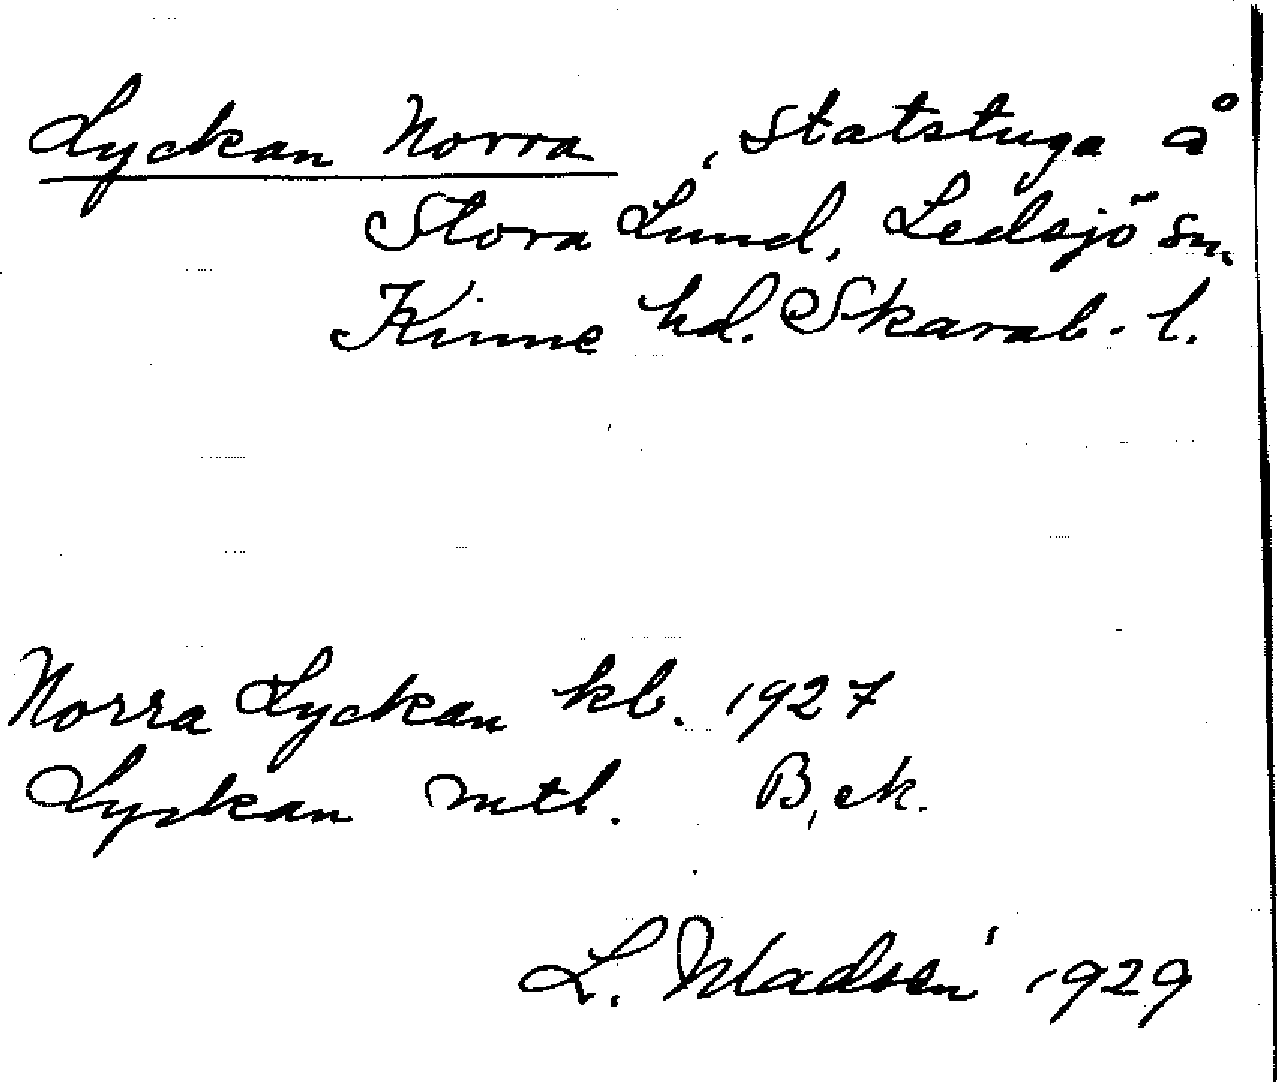 Lyckan Norra, Statstuga å
Stora Lund, Ledsjö sn.
Kinne hd. Skarab. l.
Norra Lyckan kb. 1927
Lyckan mtl. B, ek.
L. Madsén 1929